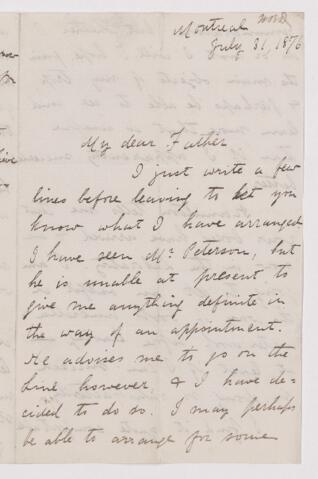 Montreal
July 31, 1876
My dear Father
I just write a few
lines before leaving to let you
know what I have arranged
I have seen Mr. Peterson, but
he is unable at present to
give me anything definite in
the way of an appointment.
He advises me to go on the
line however & I have de=
cided to do so. I may perhaps
be able to arrange for some